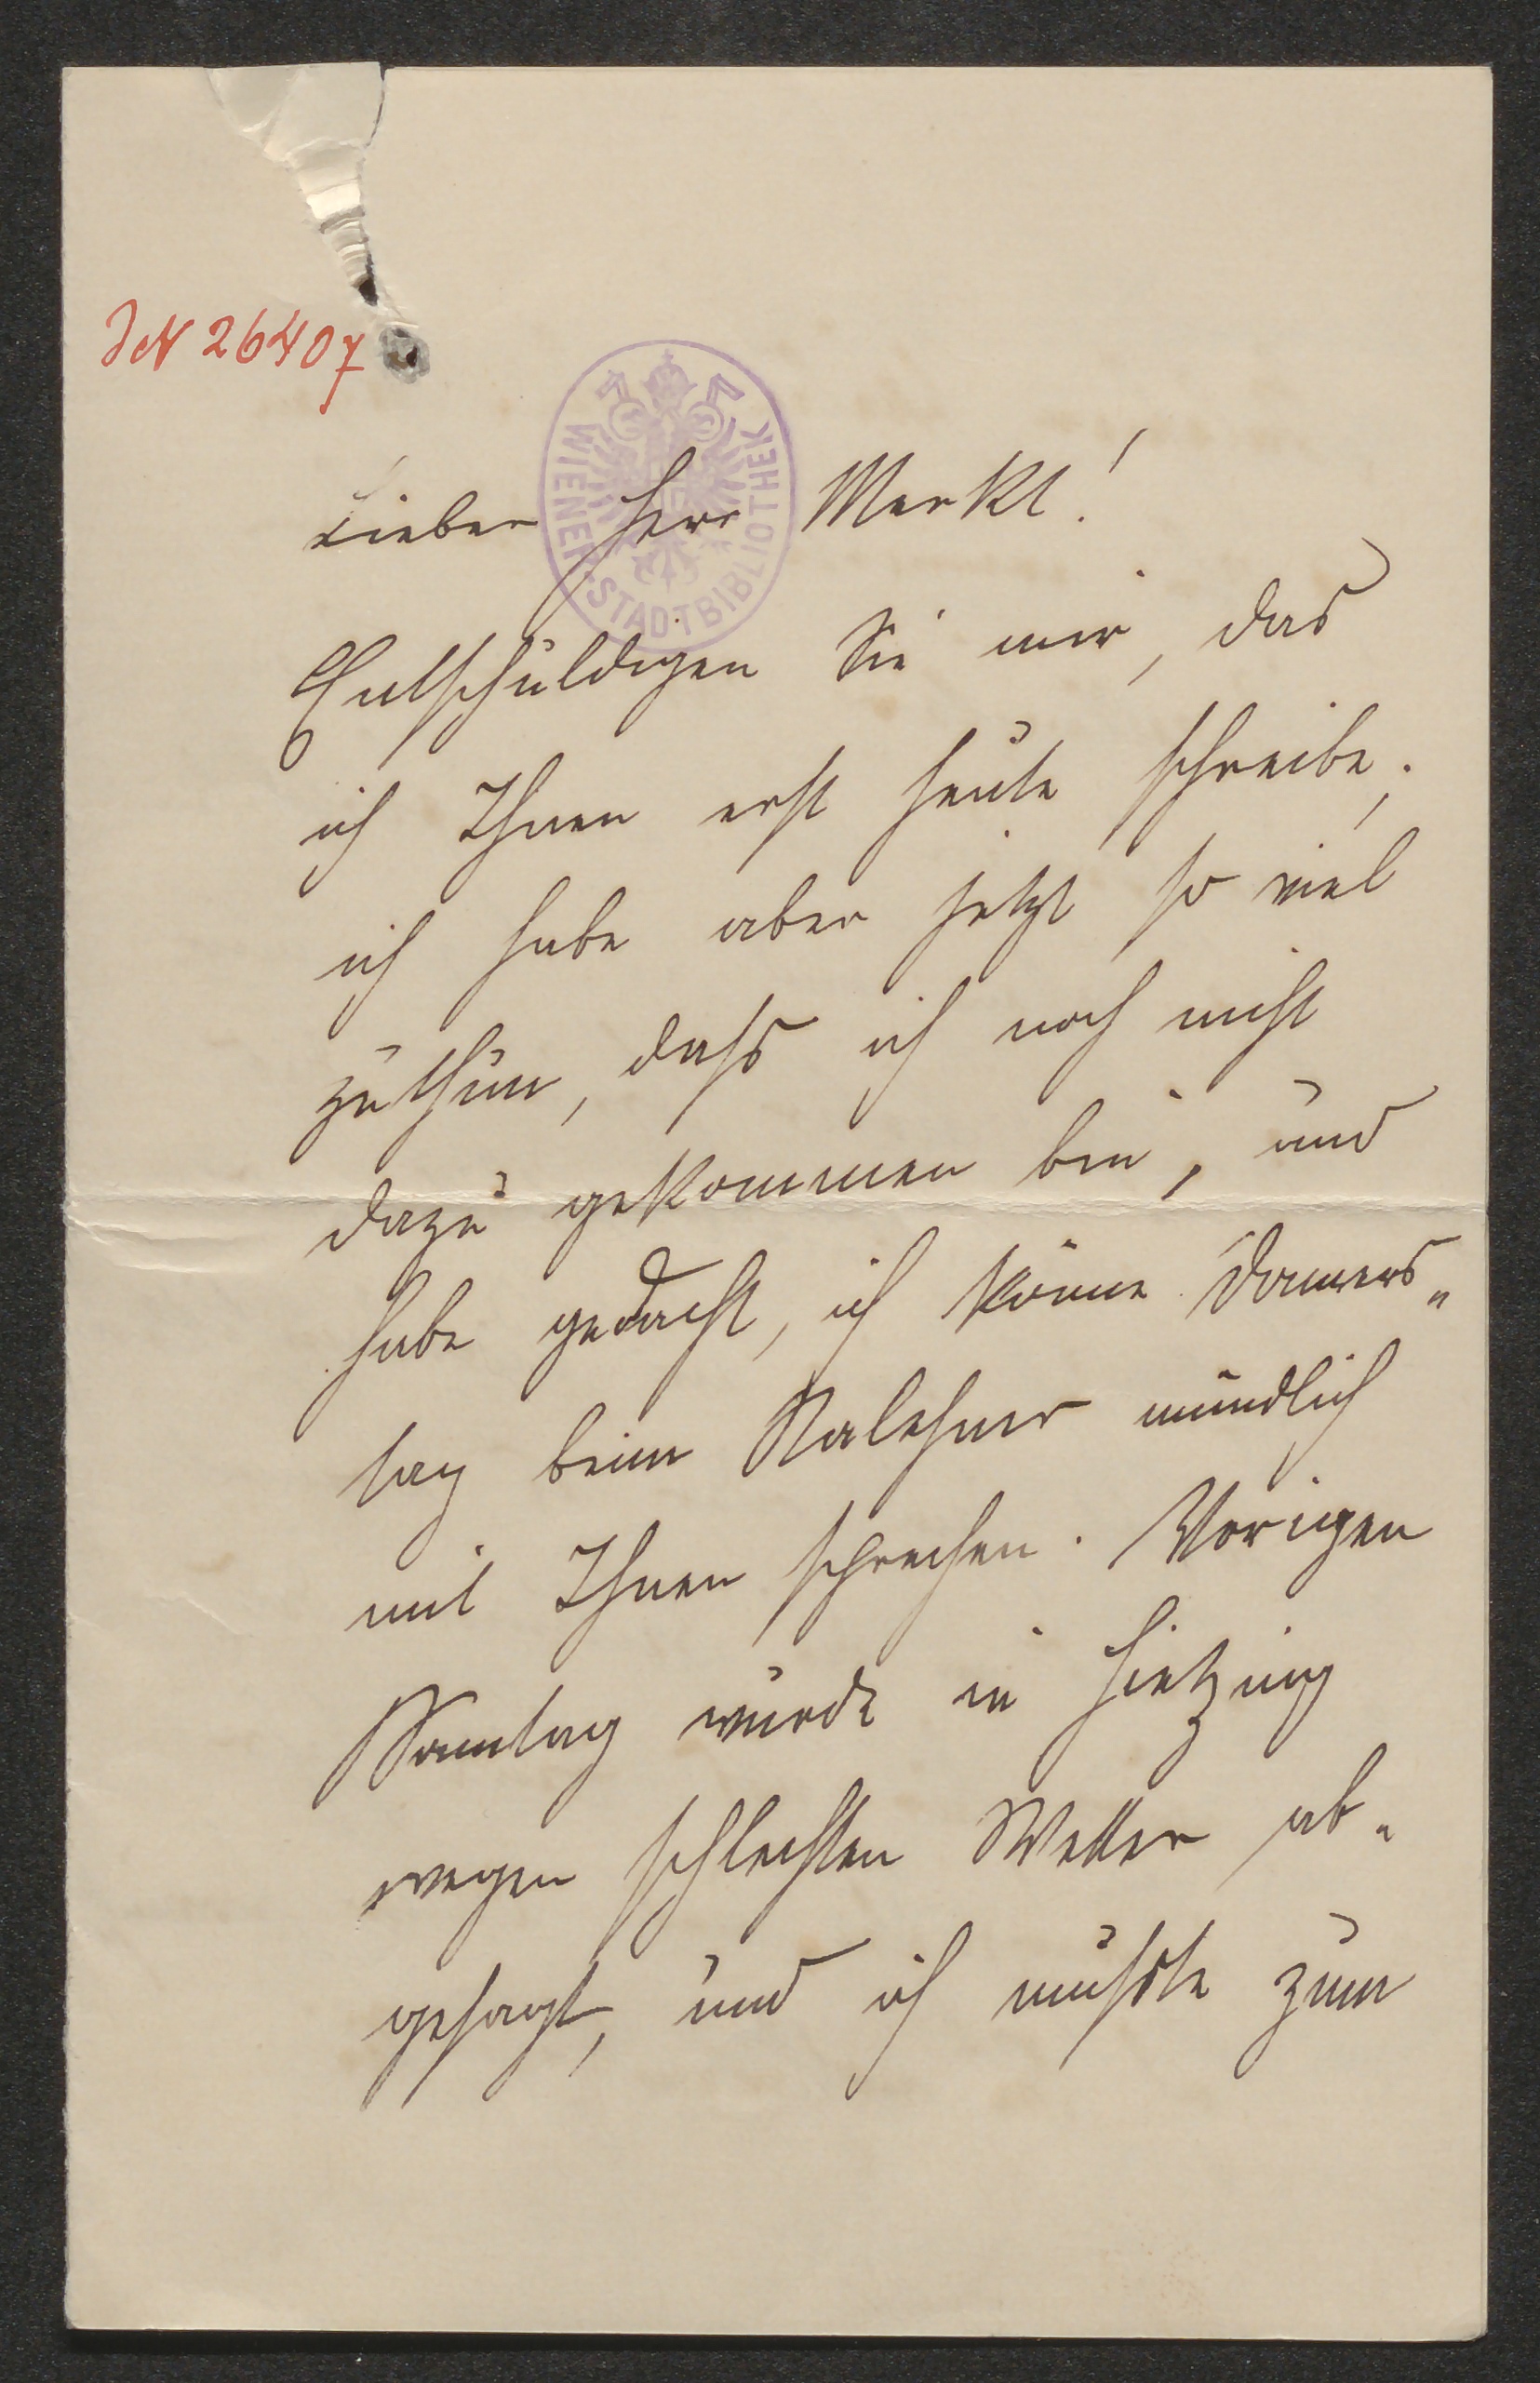 JN 26407
WIENER STADTBIBLIOTHEK
Lieber Herr Merkl!
Entschuldigen Sie mir, das
ich Ihnen erst heute schreibe,
ich habe aber jetzt so viel
zuthun, dass ich noch nicht
dazu gekommen bin, und
habe gedacht, ich könne Donners„
tag beim Stalehner mündlich
mit Ihnen sprechen. Vorigen
Sonntag wurde in Hietzing
wegen schlechten Wetter ab„
gesagt, und ich musste zum